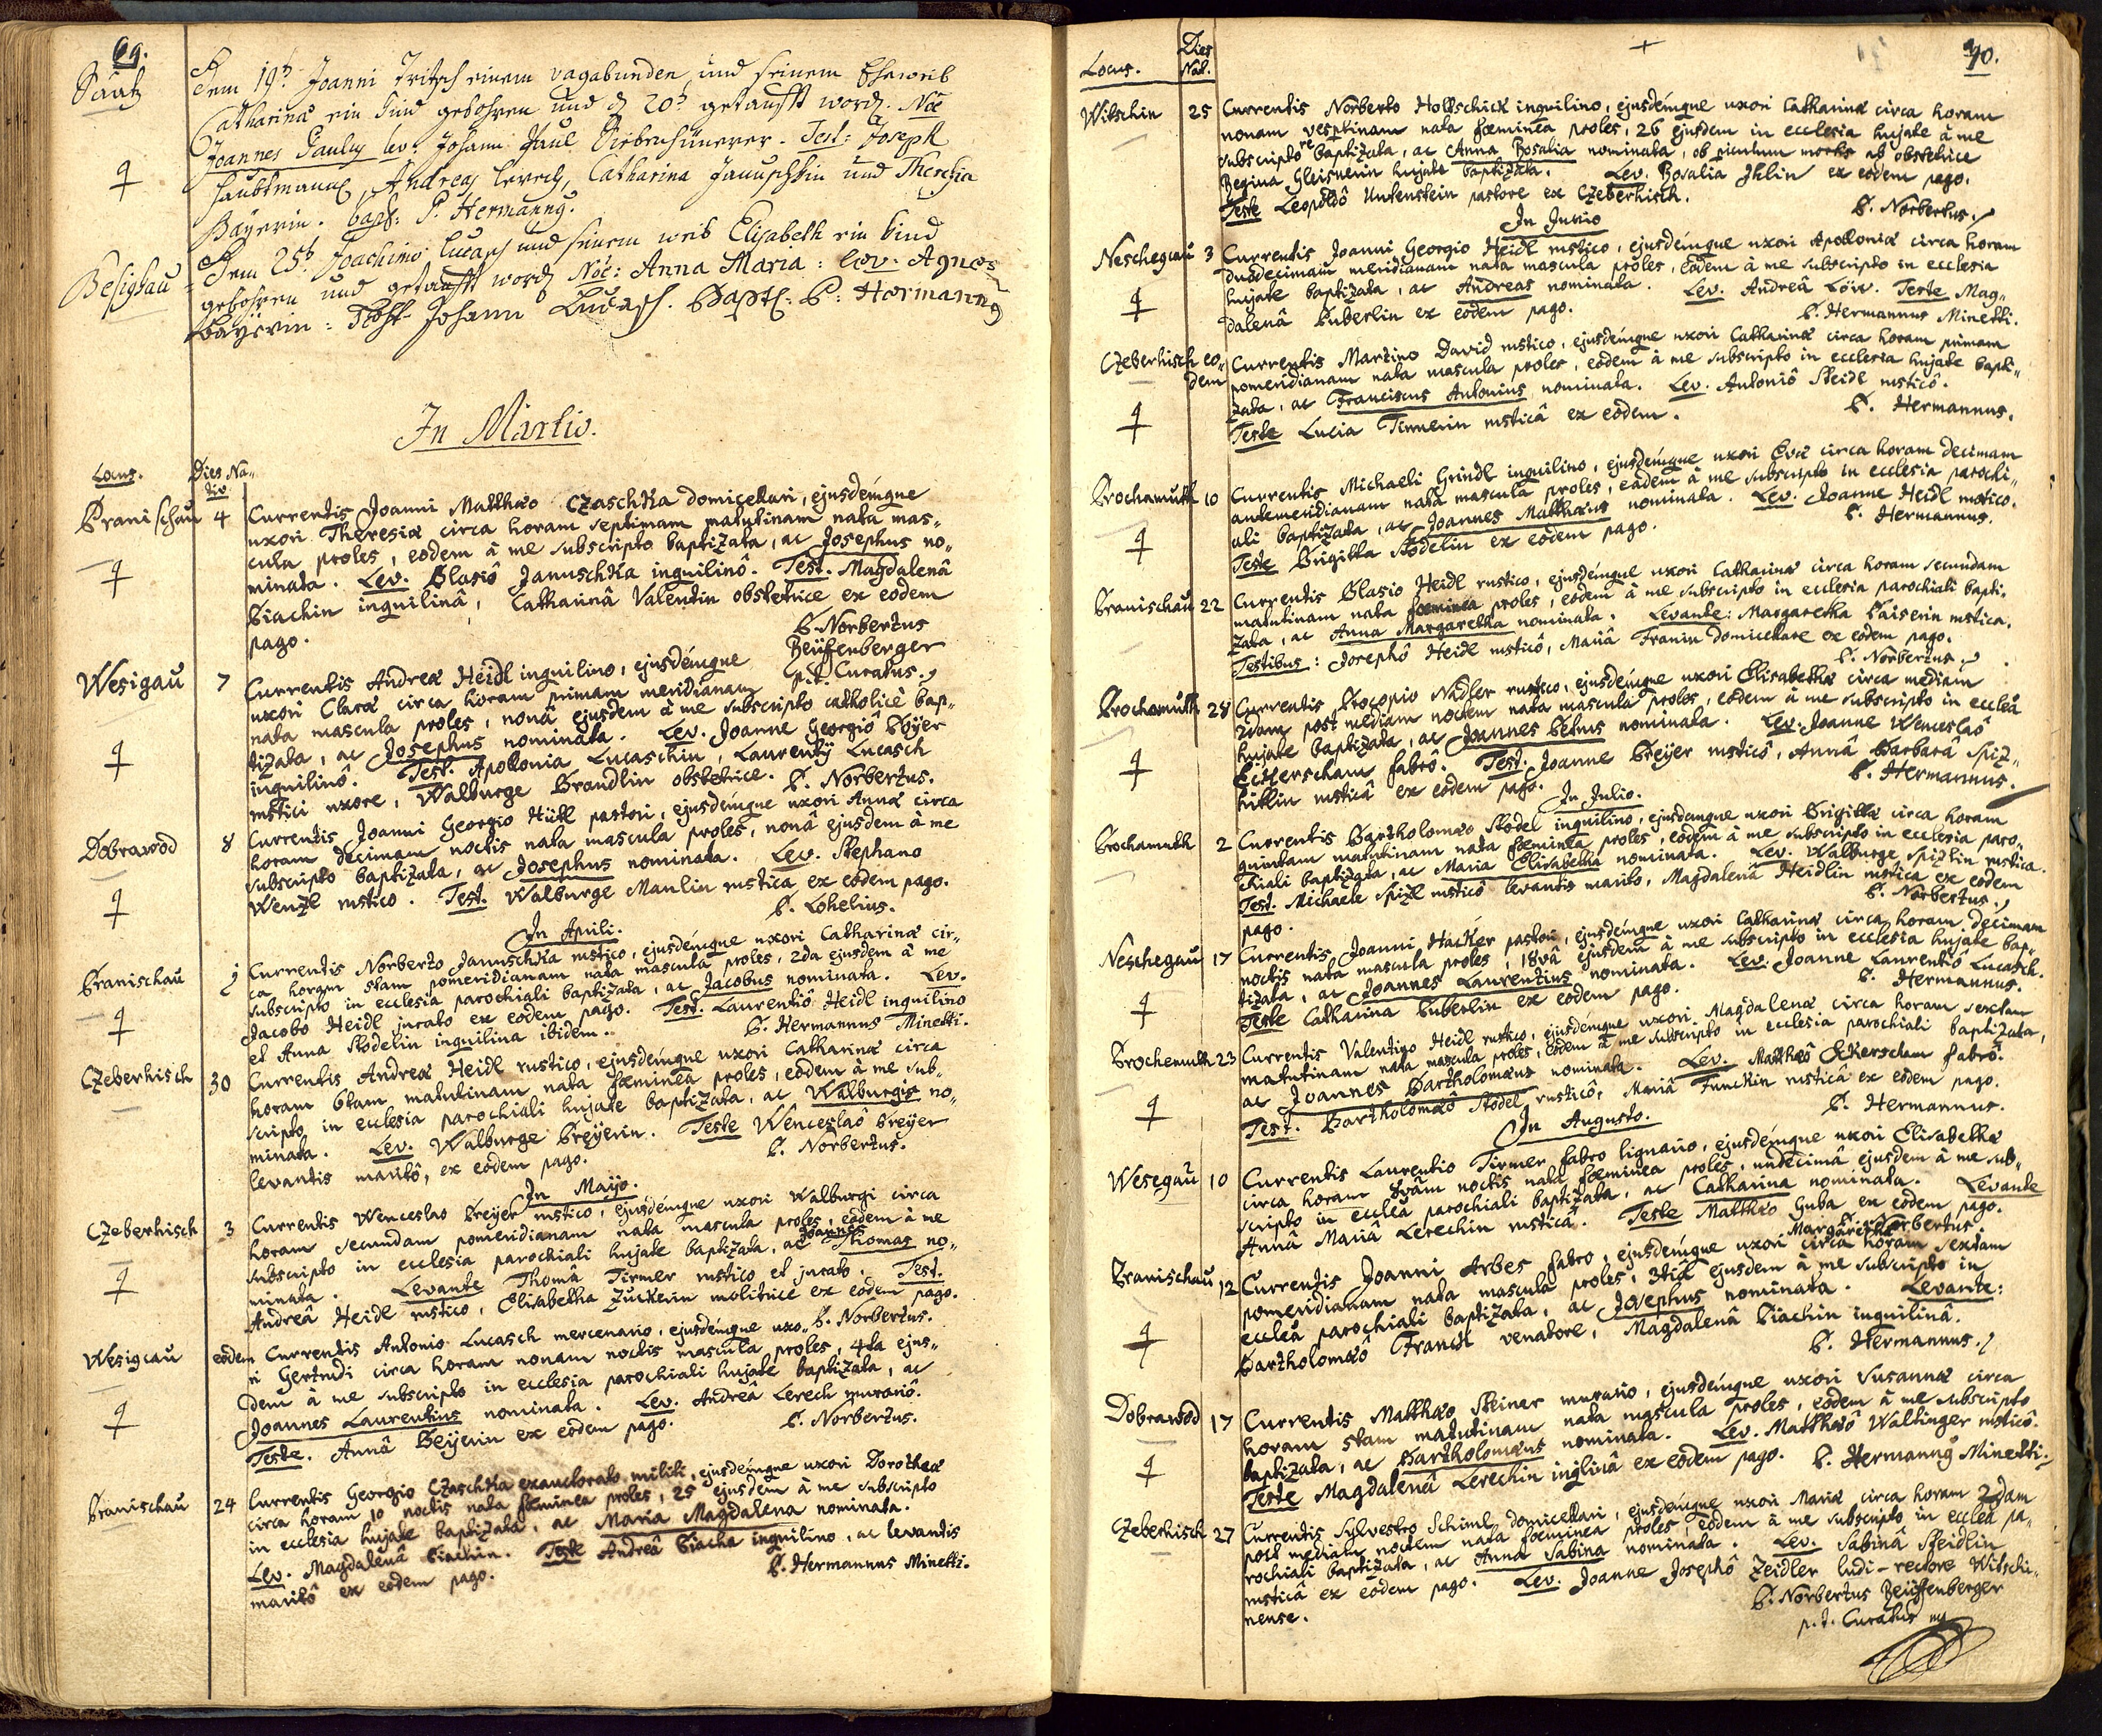 69.
Sautz
Dem 19t Joanni Fritsch einem vagabunden und seinem Eheweib
Catharina ein Kind gebohren und d 20t getaufft word. Noe
Joannes Paulus lev. Johann Paul Siebenhünerer. Test: Joseph
Haubtmann, Andreas Lerech, Catharina Januschkin und Theresia
Bayerin. bapt: P. Hermannus.
Besighau
Dem 25t Joachimo Lucasch und seinem weib Elisabeth ein kind
gebohren und getaufft word Noe: Anna Maria: lev. Agnes
Bayerin: Test Johann Lucasch. Bapt: P: Hermannus
In Martio.
Locus. Dies Na-
tiv
Branischau 4 Currentis Joanni Matthæo Czaschka domicellari, ejusdémque
uxori Theresiæ circa horam septimam matutinam nata mas-
cula proles, eodem à me subscripto baptizata, ac Josephus no-
minata. Lev. Blasiô Januschka inquilinô. Test. Magdalenâ
Biachin inquilinâ, Catharinâ Valentin obstetrice ex eodem
pago. P. Norbertus
Beüffenberger
p.t. Curatus.
Wesigau 7 Currentis Andreæ Heidl inquilino, ejusdémque
uxori Claræ circa horam primam meridianam
nata mascula proles, nonâ ejusdem à me subscripto catholicè bap-
tizata, ac Josephus nominata. Lev. Joanne Georgiô Beÿer
inquilinô. Test. Apollonia Lucaschin, Laurentÿ Lucasch
rustici uxore, Walburge Brandlin obstetrice. P. Norbertus.
Dobrawod 8 Currentis Joanni Georgio Hütl pastori, ejusdémque uxori Annæ circa
horam decimam noctis nata mascula proles, nonâ ejusdem à me
subscripto baptizata, ac Josephus nominata. Lev. Stephano
Wenzl rustico. Test. Walburge Manlin rustica ex eodem pago.
P. Lohelius.
In Aprili.
Branischau 1 Currentis Norberto Januschka rustico, ejusdémque uxori Catharinæ cir-
ca horam 8tam pomeridianam nata mascula proles, 2da ejusdem à me
subscripto in ecclesia parochiali baptizata, ac Jacobus nominata. Lev.
Jacobo Heidl jurato ex eodem pago. Test. Laurentiô Heidl inquilino
et Anna Stodelin inquilina ibidem. P. Hermannus Minetti.
Czeberhisch 30 Currentis Andreæ Heidl rustico, ejusdémque uxori Catharinæ circa
horam 6tam matutinam nata fæminea proles, eodem à me sub-
scripto in ecclesia parochiali hujate baptizata, ac Walburgis no-
minata. Lev. Walburge Breÿerin. Teste Wenceslaô Breÿer
levantis maritô, ex eodem pago. P. Norbertus.
In Majo.
Czeberhisch 3 Currentis Wenceslao Breÿer rustico, ejusdémque uxori Walburgi circa
horam secundam pomeridianam nata mascula proles, eodem à me
subscripto in ecclesia parochiali hujate baptizata, ac Joannes Thomas no-
minata. Levante Thomâ Tirmer rustico et jurato. Test.
Andreâ Heidl rustico, Elisabetha Zuckerin molitrice ex eodem pago.
P. Norbertus.
Wesigcau eodem Currentis Antonio Lucasch mercenario, ejusdémque uxo-
ri Gertrudi circa horam nonam noctis mascula proles, 4ta ejus-
dem à me subscripto in ecclesia parochiali hujate baptizata, ac
Joannes Laurentius nominata. Lev. Andreâ Lerech murariô.
Teste. Annâ Beÿerin ex eodem pago. P. Norbertus.
Branischau 24 Currentis Georgio Czaschka exauctorato militi, ejusdémque uxori Dorotheæ
circa horam 10 noctis nata fæminea proles, 25 ejusdem à me subscripto
in ecclesia hujate baptizata, ac Maria Magdalena nominata.
Lev. Magdalenâ Biachin. Teste Andreâ Biacha inquilino, ac levantis
maritô ex eodem pago. P. Hermannus Minetti.
Locus. Dies
Nat. 70.
Witschin 25 Currentis Norberto Hollschick inquilino, ejusdémque uxori Catharinæ circa horam
nonam vesptinam nata fæminea proles, 26 ejusdem in ecclesia hujate à me
subscripto re baptizata, ac Anna Rosalia nominata, ob piculum mortis ab obstetrice
Regina Gleisnerin hujate baptizata. Lev. Rosalia Ihlin ex eodem pago.
Teste Leopoldô Untenstein pastore ex Czeberhisch. P. Norbertus.
In Junio
Neschegcau 3 Currentis Joanni Georgio Heidl rustico, ejusdémque uxori Apolloniæ circa horam
duodecimam meridianam nata mascula proles, eodem à me subscripto in ecclesia
hujate baptizata, ac Andreas nominata. Lev. Andreâ Löw. Teste Mag-
dalenâ Puberlin ex eodem pago. P. Hermannus Minetti.
Czeberhisch eo-
dem Currentis Martino David rustico, ejusdémque uxori Catharinæ circa horam primam
pomeridianam nata mascula proles, eodem à me subscripto in ecclesia hujate bapti-
zata, ac Franciscus Antonius nominata. Lev. Antoniô Steidl rusticô.
Teste Lucia Tirmerin rusticâ ex eodem. P. Hermannus.
Brochamuth 10 Currentis Michaeli Grindl inquilino, ejusdémque uxori Evæ circa horam decimam
antemeridianam nata mascula proles, eâdem à me subscripto in ecclesia parochi-
ali baptizata, ac Joannes Matthæus nominata. Lev. Joanne Heidl rustico.
Teste Brigitta Stodelin ex eodem pago. P. Hermannus.
Branischau 22 Currentis Blasio Heidl rustico, ejusdémque uxori Catharinæ circa horam secundam
matutinam nata fæminea proles, eodem à me subscripto in ecclesia parochiali bapti-
zata, ac Anna Margaretha nominata. Levante: Margaretha Baiserin rustica.
Testibus: Josephô Heidl rusticô, Mariâ Franin domicellare ex eodem pago.
P. Norbertus.
Brochomuth 28 Currentis Procopio Nadler rustico, ejusdémque uxori Elisabethæ circa mediam
2dam post mediam noctem nata mascula proles, eodem à me subscripto in eccleâ
hujate baptizata, ac Joannes Petrus nominata. Lev. Joanne Wenceslaô
Eckerscham fabrô. Test. Joanne Breÿer rusticô, Annâ Barbarâ Spiz-
hittlin rusticâ ex eodem pago. P. Hermannus.
In Julio.
Brochamuth 2 Currentis Bartholomæo Stodel inquilino, ejusdemque uxori Brigittæ circa horam
quintam matutinam nata fæminea proles, eodem à me subscripto in ecclesia paro-
chiali baptizata, ac Maria Elisabetha nominata. Lev. Walburge Spizlin rustica.
Test. Michaele Spizl rusticô levantis marito, Magdalenâ Heidlin rustica ex eodem
pago. P. Norbertus.
Neschegau 17 Currentis Joanni Hacker pastori, ejusdémque uxori Catharinæ circa horam decimam
noctis nata mascula proles, 18vâ ejusdem à me subscripto in ecclesia hujate bap-
tizata, ac Joannes Laurentius nominata. Lev. Joanne Laurentiô Lucasch.
Teste Catharina Puberlin ex eodem pago. P. Hermannus.
Brochemuth 23 Currentis Valentino Heidl rustico, ejusdémque uxori Magdalenæ circa horam sextam
matutinam nata mascula proles, eodem à me subscripto in ecclesia parochiali baptizata,
ac Joannes Bartholomæus nominata. Lev. Matthæô Eckerscham fabrô.
Test. Bartholomæô Stodel rusticô, Mariâ Funckin rusticâ ex eodem pago.
P. Hermannus.
In Augusto.
Wesegau 10 Currentis Laurentio Tirmer fabro lignario, ejusdémque uxori Elisabethæ
circa horam 8vâm noctis nata fæminea proles, undecimâ ejusdem à me sub-
scripto in eccleâ parochiali baptizata, ac Catharina nominata. Levante
Annâ Mariâ Lerechin rusticâ. Teste Matthæo Guba ex eodem pago.
P. Norbertus.
Branischau 12 Currentis Joanni Arbes fabro, ejusdémque uxori Margarethæ circa horam sextam
pomeridianam nata mascula proles, 3tiâ ejusdem à me subscripto in
eccleâ parochiali baptizata, ac Josephus nominata. Levante:
Bartholomæô Francl venatore, Magdalenâ Biachin inquilinâ.
P. Hermannus.
Dobrawod 17 Currentis Matthæo Steiner murario, ejusdémque uxori Susannæ circa
horam 5tam matutinam nata mascula proles, eodem à me subscripto
baptizata, ac Bartholomæus nominata. Lev. Matthæô Waltinger rusticô.
Teste Magdalenâ Lerechin inqlinâ ex eodem pago. P. Hermannus Minetti.
Czeberhisch 27 Currentis Sylvestro Schiml domicellari, ejusdémque uxori Mariæ circa horam 2dam
post mediam noctem nata fæminea proles, eodem à me subscripto in eccleâ pa-
rochiali baptizata, ac Anna Sabina nominata. Lev. Sabinâ Steidlin
rusticâ ex eodem pago. Lev. Joanne Josephô Zeidler ludi-rectore Witschi-
nense. P. Norbertus Beüffenberger
p.t. Curatus